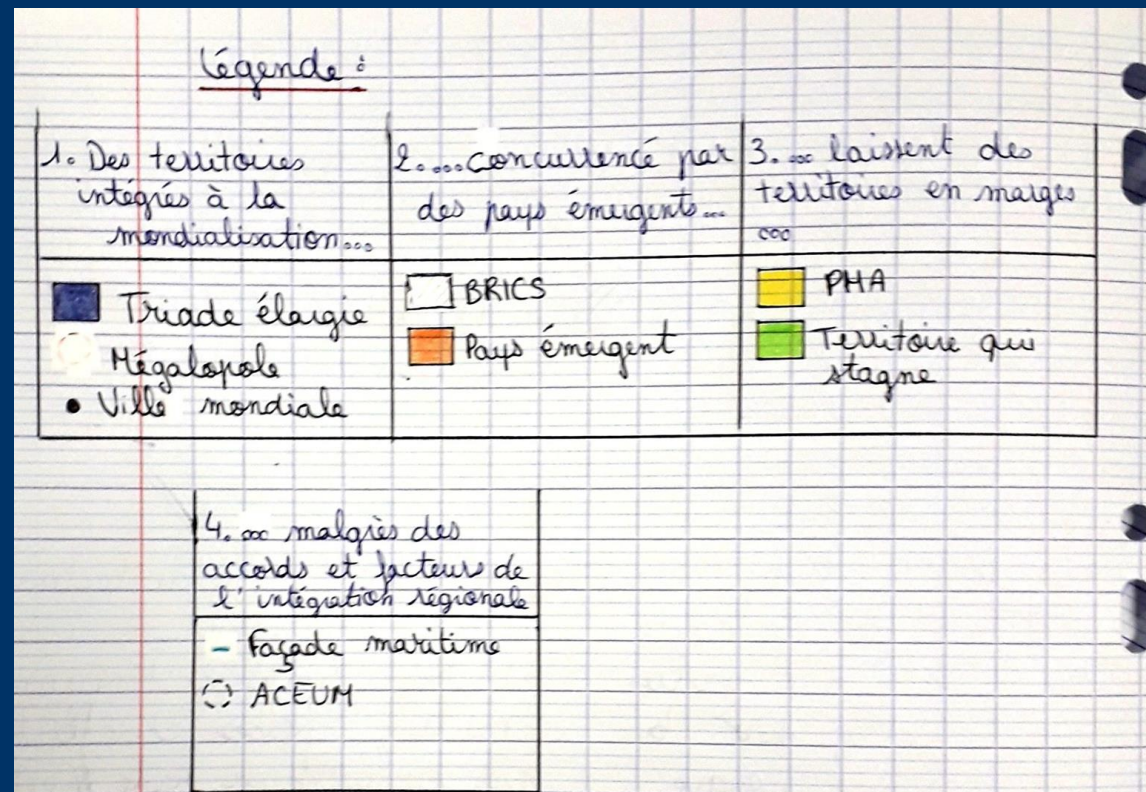 Légende :
1. Des territoires
intégrés à la
mondialisation...
2. ...concurrencé par
des pays émergents...
3. ... laissent des
territoires en marges
...
Triade élargie
Mégalopole
• Ville mondiale
BRICS
Pays émergent
PMA
Territoire qui
stagne
4. ... malgrès des
accords et facteurs de
l'intégration régionale
- Façade maritime
ACEUM